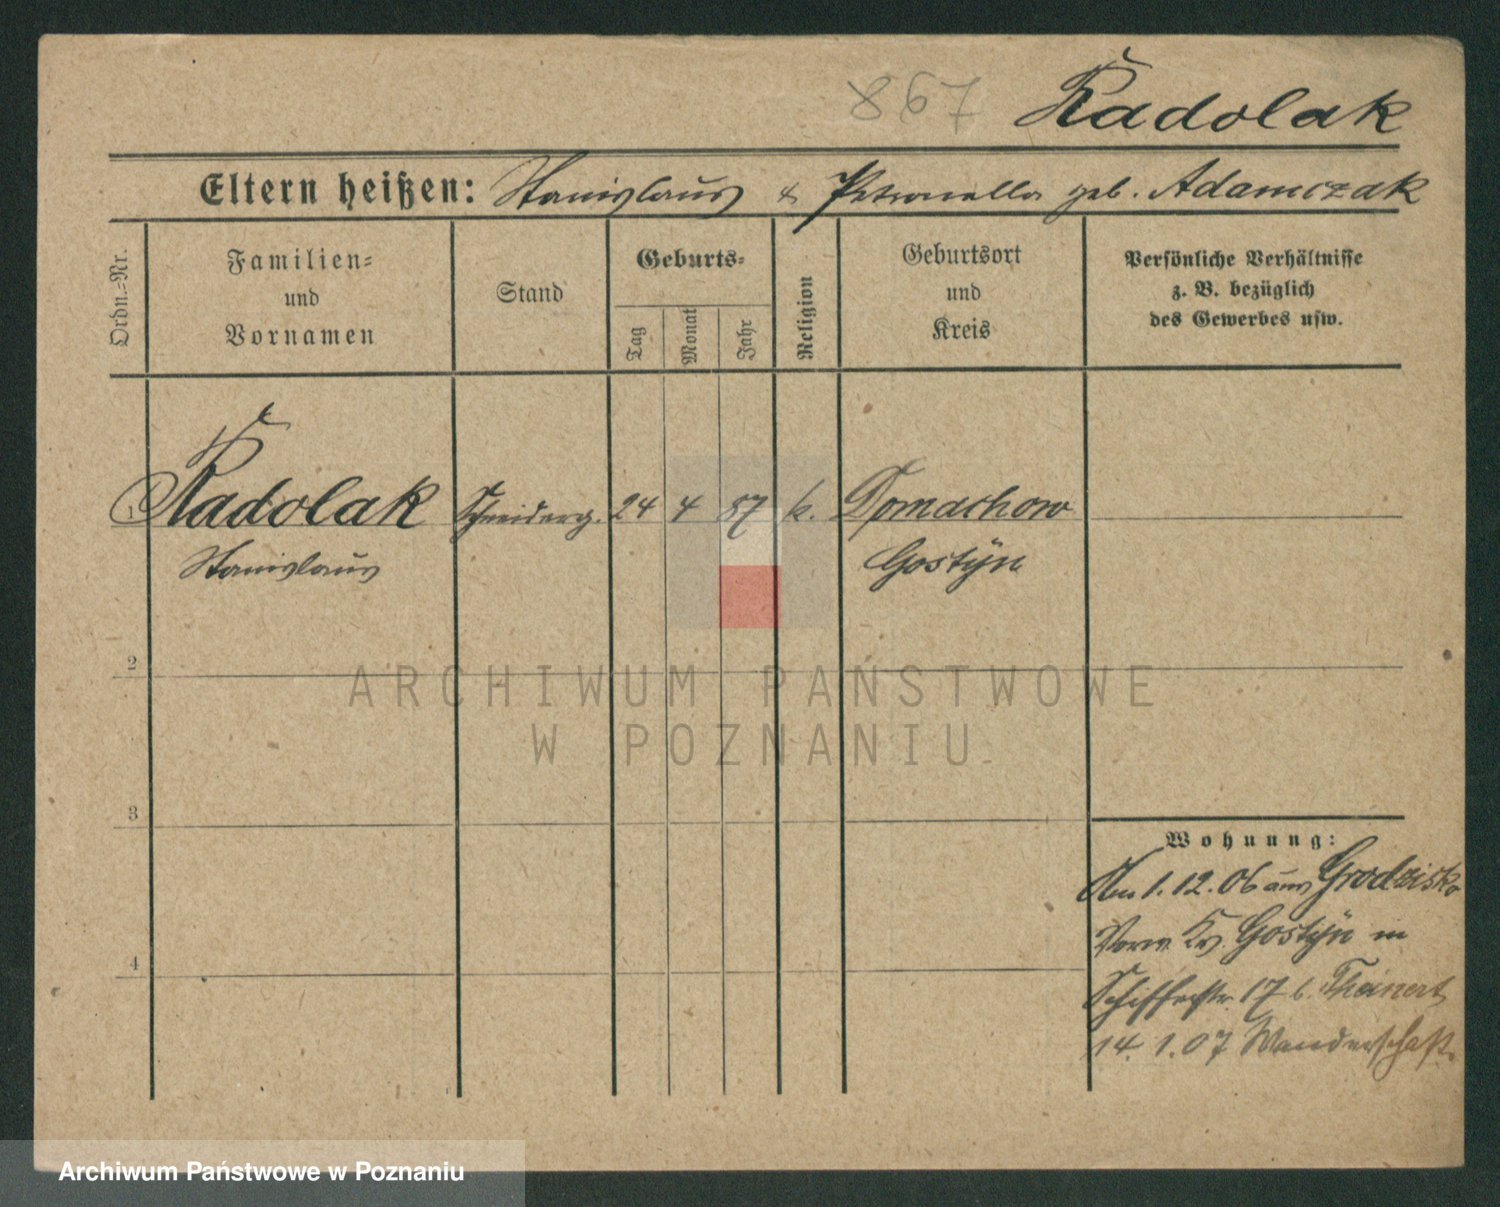 867
Radolak
Eltern heißen: Stanislaus & Petronella geb. Adamczak
Ordn.=Nr.
Familien=
und
Vornamen
Stand
Geburts=
Tag
Monat
Jahr
Religion
Geburtsort
und
Kreis
Persönliche Verhältnisse
z. B. bezüglich
des Gewerbes usw.
1 Radolak Schneiderg. 24 4 87 k. Domachowo
Stanislaus Gostÿn
2
ARCHIWUM PAŃSTWOWE
W POZNANIU
3
Wohnung:
Am 1.12.06 aus Grodzisko
Vorw. Kr. Gostÿn in
Schifferstr. 17 b. Theinert
4
14.1.07 Wanderschaft.
Archiwum Państwowe w Poznaniu